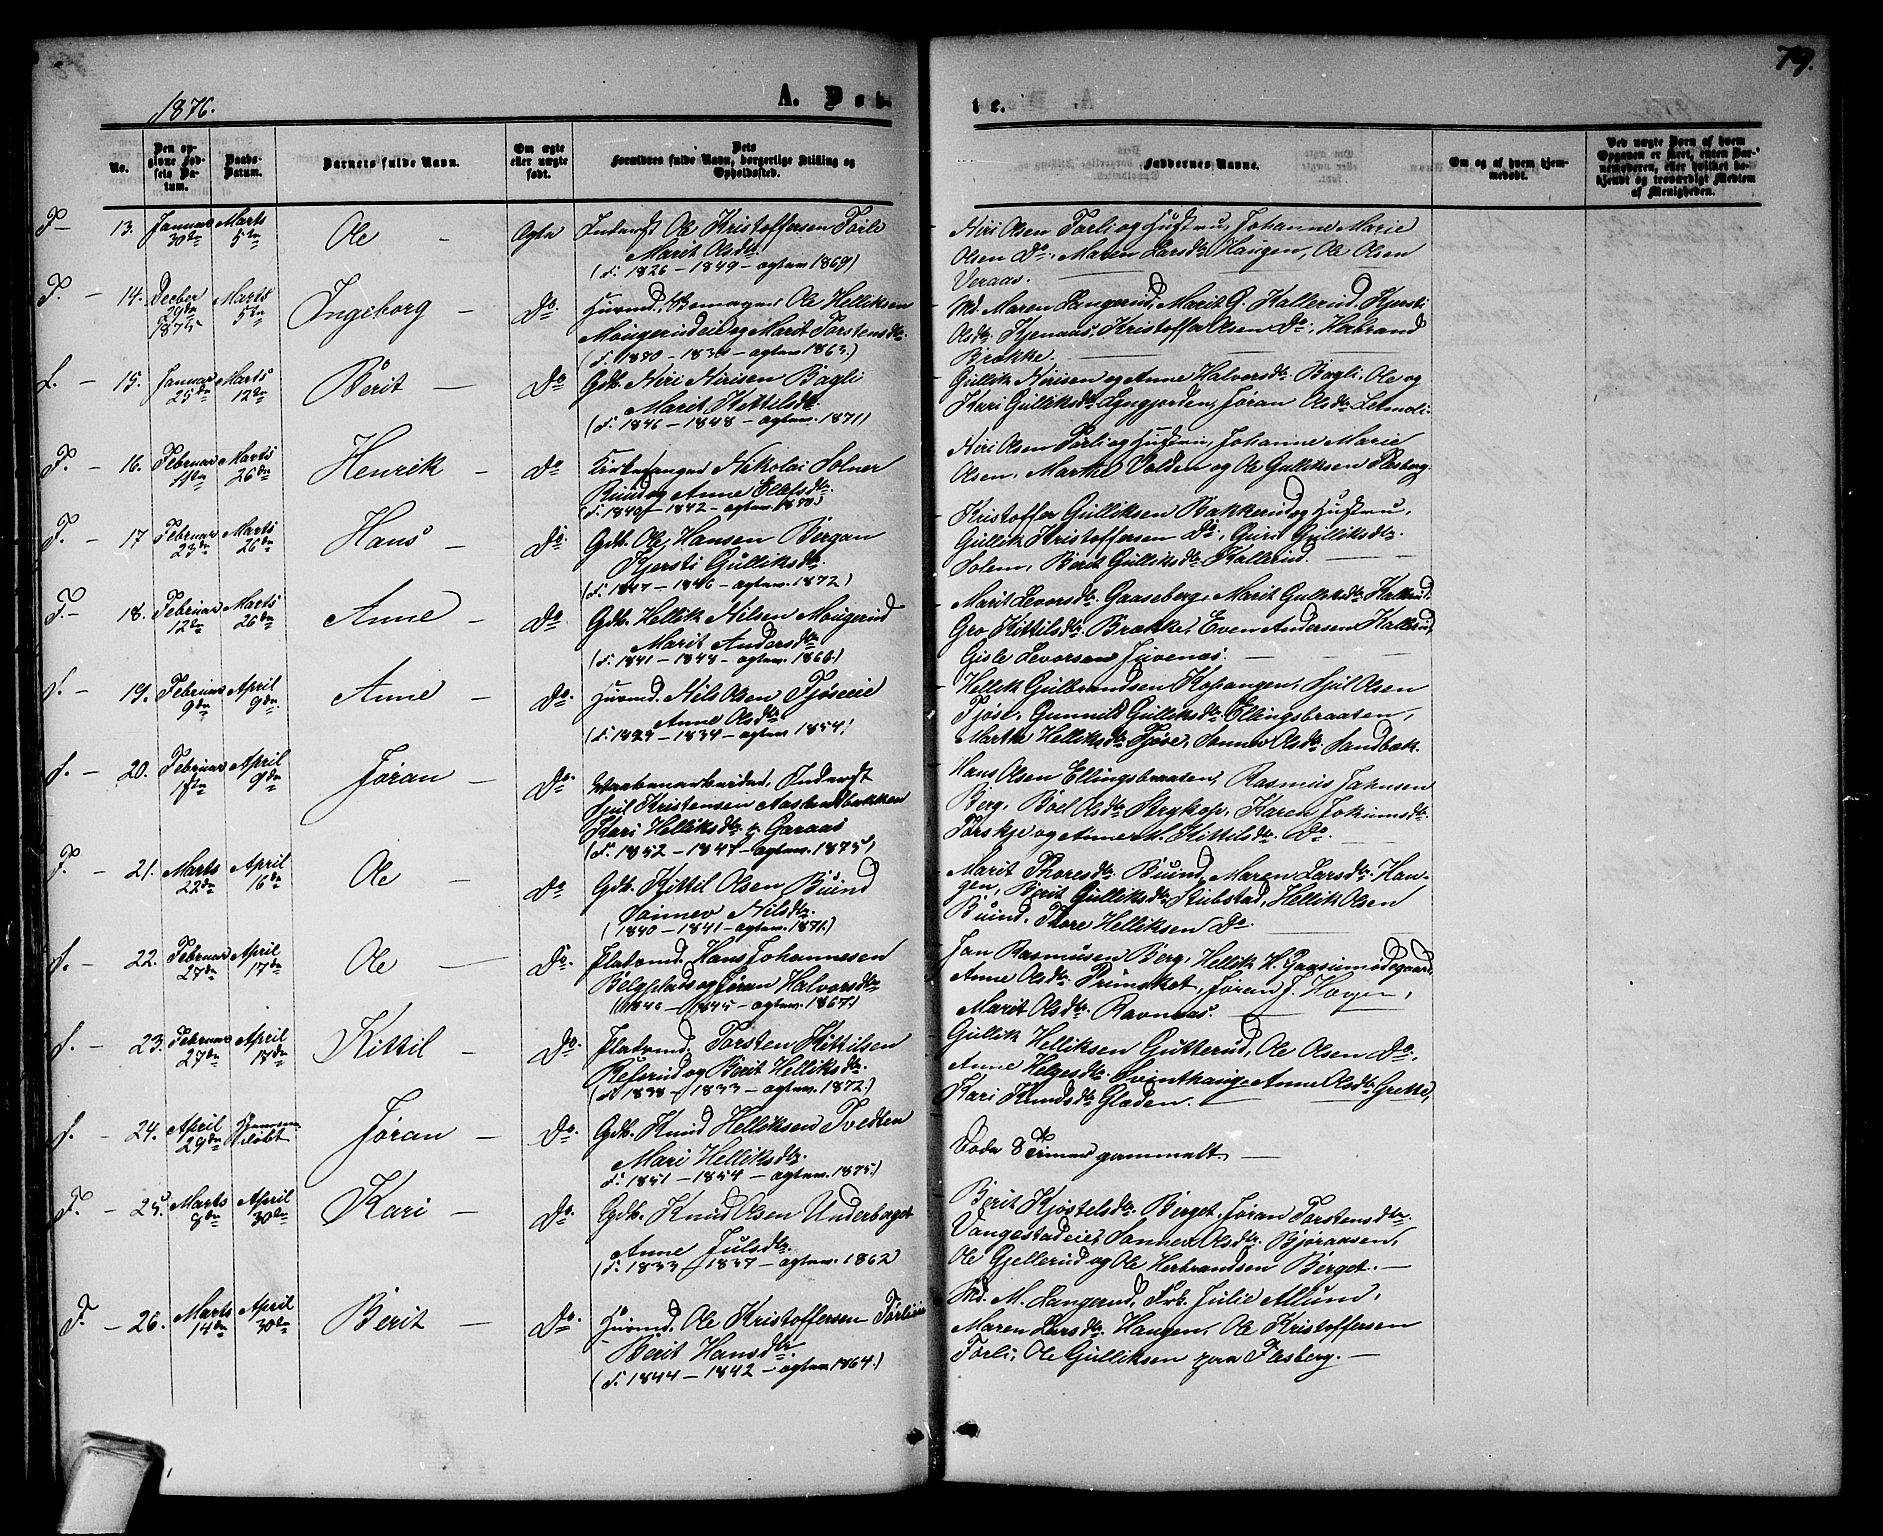 79.
1876.
A. Døb-
te.
No.
Den op-
givne Fød-
sels Da-
tum.
Daabs-
Datum.
Barnets fulde Navn.
Om ægte
eller uægte
født.
Dets
Forældres fulde Navn, borgerlige Stilling og
Opholdssted.
Faddernes Navne.
Om og af hvem hjem-
medøbt.
Ved uægte Børn af hvem
Opgaven er skeet, enten Bar-
nemoderen, eller hvilket be-
kjendt og troværdigt Medlem
af Menigheden.
F. - 13. Januar 30te Marts 5te Ole - Ægte Inderst Ole Kristoffersen Tørli
Marit Olsdtr.
(f. 1826 - 1849 - ægtev. 1869)
Niri Olsen Tørli og Hustru, Johanne Marie
Olsen Do. Maren Larsdtr. Haugen, Ole Olsen
Veraas.
F. - 14. Decber 29de 1875 Marts 5te Ingeborg - Do Ole Helliksen
Mougerudeie og Marit Torstensdtr.
- 1834 - ægtev 1863.)
Md. Maren Langerud, Marit G. Kallerud, Kjersti
Olsdtr. Kjenaas, Kristoffer Olsen Do., Herbrand
Brække.
f. - 15. Januar 25de Marts 12te Berit - Do Gdb. Niri Nirisen Bagli
Marit Kittilsdtr.
(f. 1846 - 1848 - ægtev. 1871)
Gullik Nirisen og Anne Halvorsdtr. Bagli, Ole og
Kari Gulliksdtr. Lyngjorden, Jøran Olsdtr. Letmoli.
F. - 16. Februar 11te Marts 26de Henrik - Do Kirkesanger Nikolai Solner
Ruud og Anne Elefsdtr.
(f. 1840 - 1842 - ægtev. 1870)
Niri Olsen Tørli og Hustru, Johanne Marie
Olsen, Marthe Volden og Ole Gulliksen Flesberg.
F. - 17 Februar 23de Marts 26de Hans - Do. Gdb. Ole Hansen Bergan
Kjersti Gulliksdtr.
(f. 1847 - 1846 - ægtev. 1872)
Kristoffer Gulliksen Bakkerud og Hustru,
Gullik Kristoffersen Do., Guro Gulliksdtr.
Solem, Berit Gulliksdtr. Kallerud.
F. - 18. Februar 12te Marts 26de Anne - Do. Gdb. Hellik Nilsen Mougerud
Marit Andersdtr.
(f. 1841 - 1848 - ægtev. 1866)
Marit Levorsdtr. Gaaseberg, Marit Gulliksdtr. Kallerud,
Gro Kittilsdtr. Brække, Even Andersen Kallerud,
Gisle Levorsen Juvenæs.
f. - 19. Februar 9de April 9de. Anne - Do. Husmd. Nils Olsen Tjøseeie
Anne Olsdtr.
(f. 1829 - 1834 - ægtev 1854)
Hellik Gulbrandsen Kopangen, Sjul Olsen
Tjøse, Gunnild Gulliksdtr. Ellingsbraaten,
Marthe Helliksdtr. Tjøse, Sønnev Olsdtr. Sandbæk.
f. - 20. Februar 1ste April 9de Jøran - Do. Vaabenarbeider, Inderst
Sjul Kristensen Aaslandbakken
Kari Helliksdtr. Garaas
(f. 1852 - 1847 - ægtev. 1875)
Hans Olsen Ellingsbraaten, Rasmus Jahnsen
Berg, Boel Olsdtr. Strykop, Karen Johannsdtr.
Torskje og Anne M. Kittilsdtr. Do.
F. - 21. Marts 22de April 16de Ole - Do Gdb. Kittil Olsen Buind
Sønnev Nilsdtr.
(1840 - 1841 - ægtev. 1871.)
Marit Thoresdtr. Buind, Maren Larsdtr. Hau-
gen, Berit Gulliksdtr. Stubstad, Hellik Olsen
Buind, Thore Helliksen Do.
f. - 22. Februar 27de April 17de Ole - Do. Pladsmd. Hans Johannesen
Belgplads og Jøran Halvorsdtr.
(1840 - 1845 - ægtev. 1867)
Jan Rasmussen Berg, Hellik H. Gaasumødegaard,
Anne Olsdtr. Prinsket, Jøran J. Hagen,
Marit Olsdtr. Ravnaas.
f. - 23. Februar 27de April 17de Kittil - Do. Pladsmd. Torsten Kittilsen
Refsrud og Berit Helliksdtr.
(f. 1838 - 1833 - ægtev. 1872.)
Gullik Helliksen Gutterud, Ole Olsen Do.,
Anne Helgesdtr. Svinthaug, Anne Olsdtr. Grette,
Kari Knudsdtr. Gladen.
f. - 24. April 29de Hjemme døbt Jøran - Do. Gdb. Knud Helliksen Tvedten
Mari Helliksdtr.
f. 1851 - 1854 - ægtev. 1875.)
Døde 8 Timer gammelt.
F. - 25. Marts 8de April 30te Kari - Do. Gdb. Knud Olsen Underberget
Anne Julsdtr.
(f. 1833 - 1837 - ægtev. 1862)
Berit Kjøstelsdtr. Berget, Jøran Torstensdtr.
Vangestadeie, Sønnev Olsdtr. Bjøraasen,
Ole Gjellerud og Ole Herbrandsen Berget.
F. - 26. Marts 14de April 30te Berit - Do. Husmd. Ole Kristoffersen Tørlieie
Berit Hansdtr.
(f. 1844 - 1842 - ægtev 1864.)
Md. M. Langerud, Frk. Julie Aslund,
Maren Larsdtr. Haugen, Ole Kristoffersen
Tørli, Ole Gulliksen paa Flesberg.